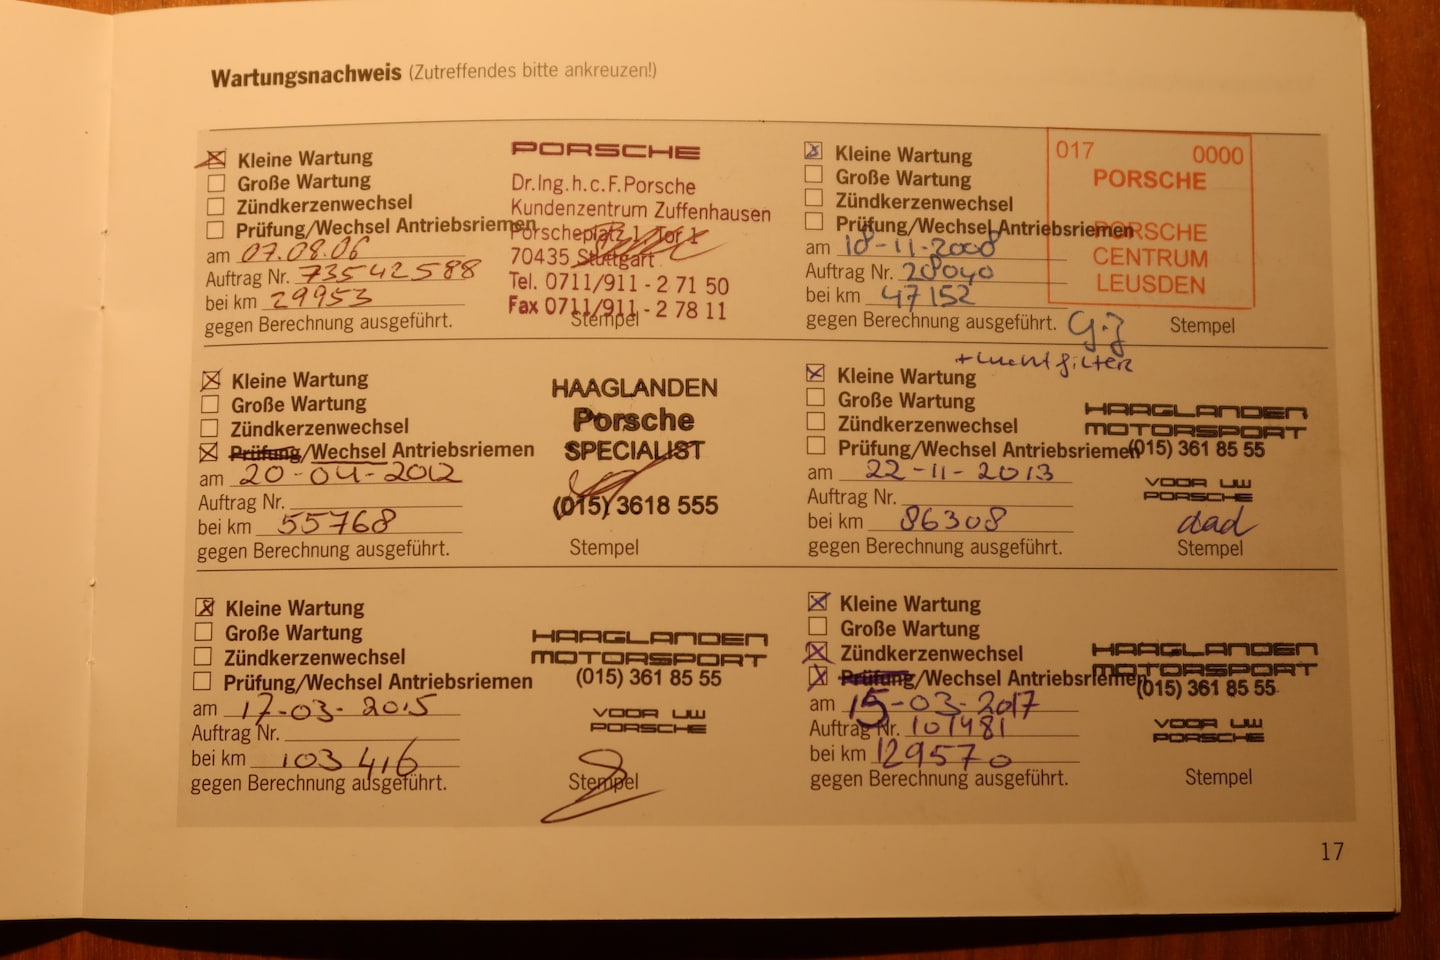 Wartungsnachweis (Zutreffendes bitte ankreuzen!)
Kleine Wartung
Große Wartung
Zündkerzenwechsel
Prüfung/Wechsel Antriebsriemen
am 07.08.06
Auftrag Nr. 73542588
bei km 29953
gegen Berechnung ausgeführt.
PORSCHE
Dr.Ing.h.c.F.Porsche
Kundenzentrum Zuffenhausen
Porscheplatz 1, Tor 1
70435 Stuttgart
Tel. 0711/911 - 2 71 50
Fax 0711/911 - 2 78 11
Stempel
Kleine Wartung
Große Wartung
Zündkerzenwechsel
Prüfung/Wechsel Antriebsriemen
am 18-11-2008
Auftrag Nr. 28040
bei km 47152
gegen Berechnung ausgeführt.
017 0000
PORSCHE
PORSCHE
CENTRUM
LEUSDEN
Stempel
Kleine Wartung
Große Wartung
Zündkerzenwechsel
Prüfung/Wechsel Antriebsriemen
am 20-04-2012
Auftrag Nr.
bei km 55768
gegen Berechnung ausgeführt.
HAAGLANDEN
Porsche
SPECIALIST
(015) 3618 555
Stempel
+ luchtfilter
Kleine Wartung
Große Wartung
Zündkerzenwechsel
Prüfung/Wechsel Antriebsriemen
am 22-11-2013
Auftrag Nr.
bei km 86308
gegen Berechnung ausgeführt.
HAAGLANDEN
MOTORSPORT
(015) 361 85 55
VOOR UW
PORSCHE
Stempel
Kleine Wartung
Große Wartung
Zündkerzenwechsel
Prüfung/Wechsel Antriebsriemen
am 17-03-2015
Auftrag Nr.
bei km 103416
gegen Berechnung ausgeführt.
HAAGLANDEN
MOTORSPORT
(015) 361 85 55
VOOR UW
PORSCHE
Stempel
Kleine Wartung
Große Wartung
Zündkerzenwechsel
Prüfung/Wechsel Antriebsriemen
am 15-03-2017
Auftrag Nr. 101481
bei km 129570
gegen Berechnung ausgeführt.
HAAGLANDEN
MOTORSPORT
(015) 361 85 55
VOOR UW
PORSCHE
Stempel
17